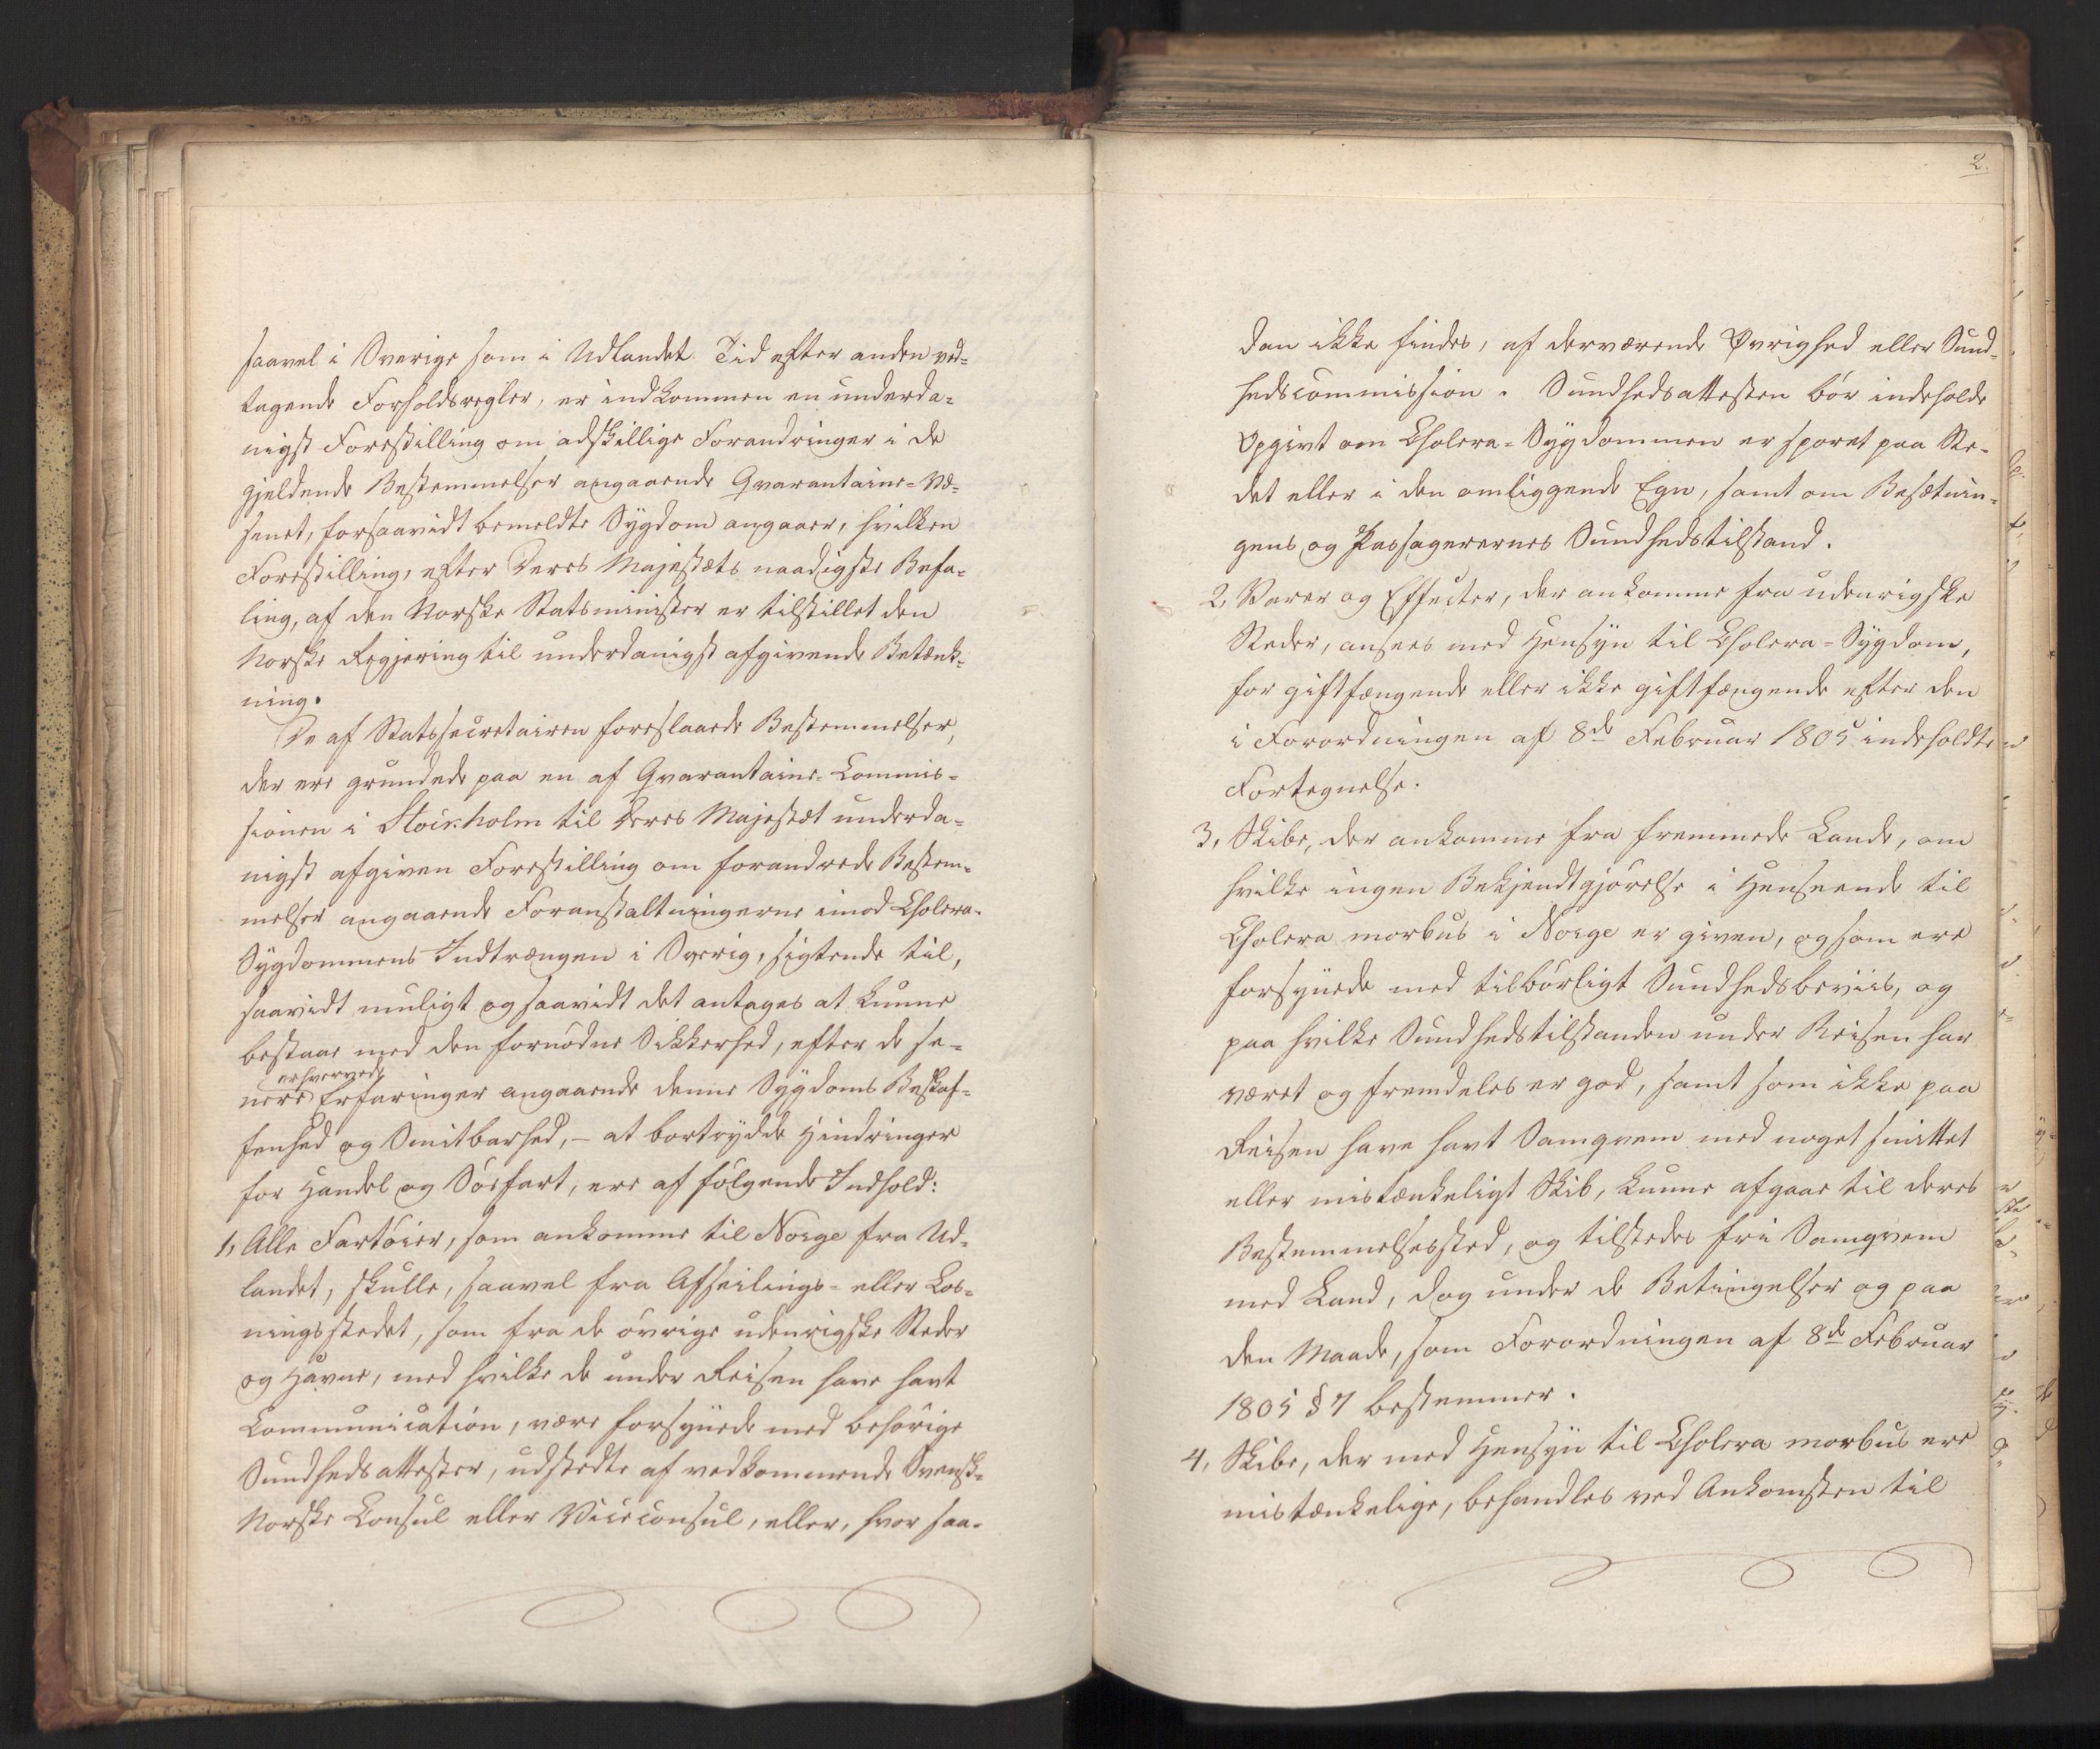 saavel i Sverige som i Udlandet Tid efter anden ved-
tagende Forholdsregler, er indkommen en underda-
nigst Forestilling om adskillige Forandringer i de
gjeldende Bestemmelser angaaende Qvarantaine-Væ-
senet, forsaavidt bemeldte Sygdom angaaer, hvilken
Forestilling, efter Deres Majestæts naadigste Befa-
ling, af den Norske Statsminister er tilstillet den
Norske Regjering til underdanigst afgivende Betænk-
ning.
De af Statssecretairen foreslaaede Bestemmelser,
der ere grundede paa en af Qvarantaine-Commis-
sionen i Stockholm til Deres Majestæt underda-
nigst afgiven Forestilling om forandrede Bestem-
melser angaaende Foranstaltningerne imod Cholera-
Sygdommens Indtrængen i Sverig, sigtende til,
saavidt muligt og saavidt det antages at kunne
bestaae med den fornødne Sikkerhed, efter de se-
erhvervede
nere Erfaringer angaaende denne Sygdoms Beskaf-
fenhed og Smitbarhed, - at bortrydde Hindringer
for Handel og Søefart, ere af følgende Indhold:
1, Alle Fartøier, som ankomme til Norge fra Ud-
landet, skulle, saavel fra Afseilings- eller Los-
ningsstedet, som fra de øvrige udenrigske Steder
og Havne, med hvilke de under Reisen have havt
Communication, være forsynede med behørige
Sundhedsattester, udstedte af vedkommende Svensk-
Norske Consul eller Viceconsul, eller, hvor saa-
2.
dan ikke findes, af derværende Øvrighed eller Sund-
hedscommission. Sundhedsattesten bør indeholde
Opgivt om Cholera-Sygdommen er sporet paa Ste-
det eller i den omliggende Egn, samt om Besætnin-
gens og Passagerernes Sundhedstilstand.
2, Varer og Effecter, der ankomme fra udenrigske
Steder, ansees med Hensyn til Cholera-Sygdom,
for giftfængende eller ikke giftfængende efter den
i Forordningen af 8de Februar 1805 indeholdte
Fortegnelse.
3, Skibe, der ankomme fra fremmede Lande, om
hvilke ingen Bekjendtgjørelse i Henseende til
Cholera morbus i Norge er given, og som ere
forsynede med tilbørligt Sundhedsbeviis, og
paa hvilke Sundhedstilstanden under Reisen har
været og fremdeles er god, samt som ikke paa
Reisen have havt Samqvem med noget smittet
eller mistænkeligt Skib, kunne afgaae til deres
Bestemmelsessted, og tilstedes fri Samqvem
med Land, dog under de Betingelser og paa
den Maade, som Forordningen af 8de Februar
1805 § 7 bestemmer.
4, Skibe, der med Hensyn til Cholera morbus ere
mistænkelige, behandles ved Ankomsten til